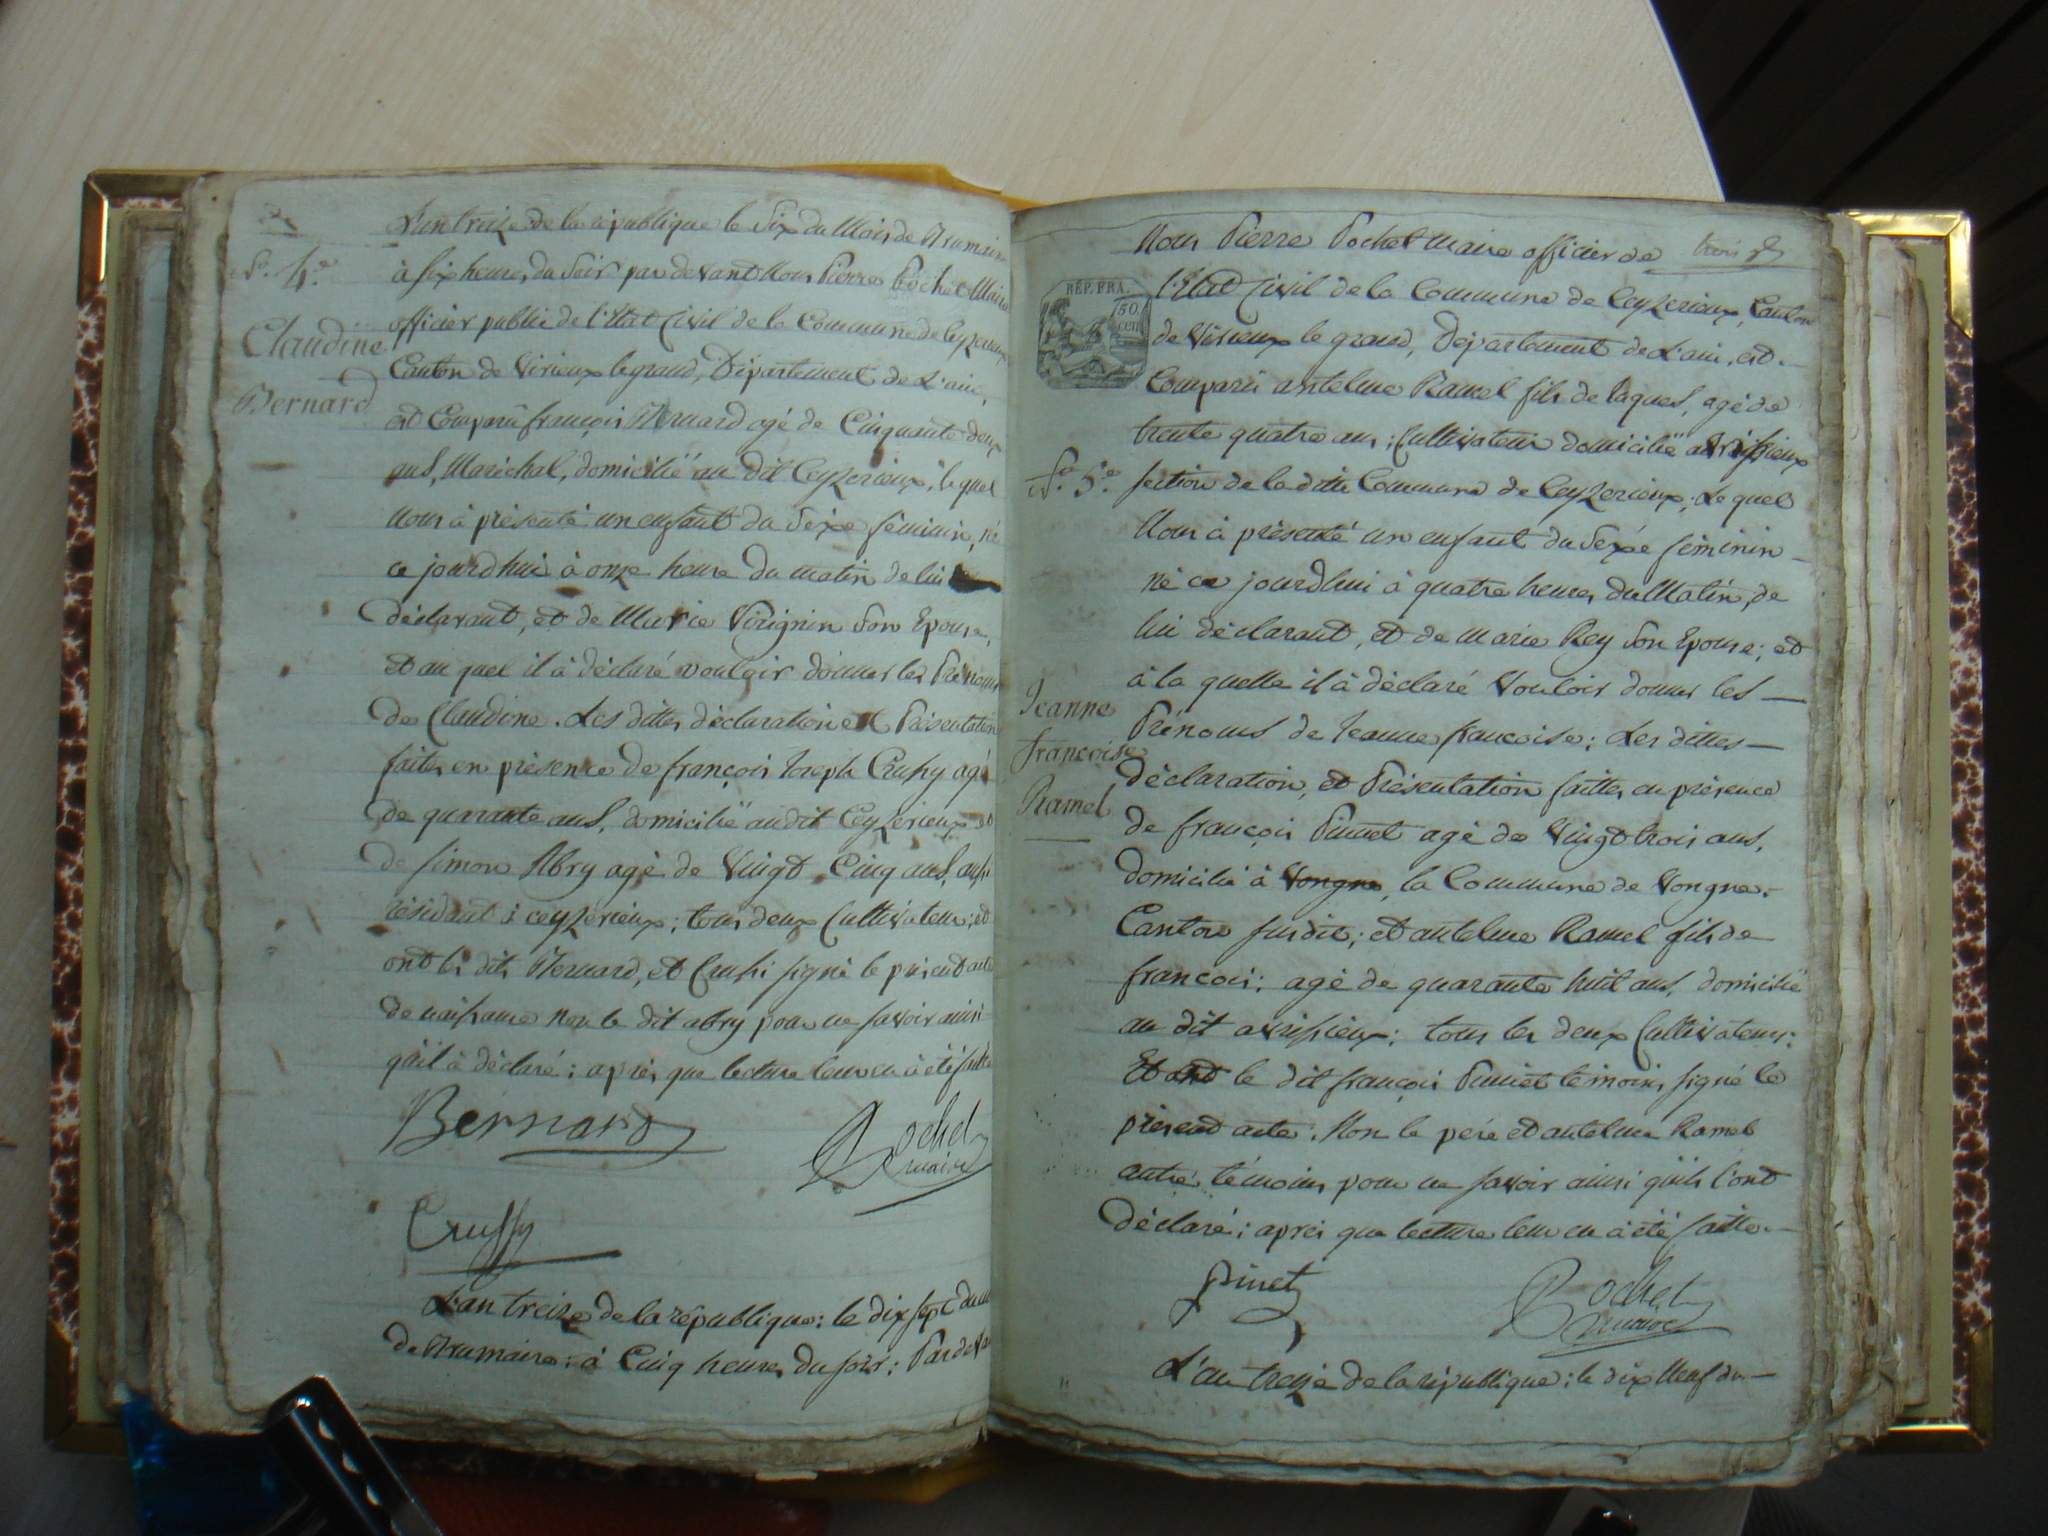 L'an treize de la république le Six du Mois de Brumaire
à Six heures du Soir par devant Nous Pierre Pochet Maire
N.º 4.e
officier public de l'Etat Civil de la Commune de Ceyzerieux
Claudine
Bernard
Canton de Virieux le grand, Département de L'ain,
est Comparü françois Bernard agé de Cinquante deux
ans, Maréchal, domicilié au dit Ceyzerieux, le quel
Nous à présenté un enfant du Sexe féminin, né
ce jourdhui à onze heure du matin de lui
déclarant, et de Marie Virignin Son Epouse,
et au quel il à déclaré vouloir donner les Prénoms
de Claudine. Les dittes déclaration et Présentation
faites en présence de françois Joseph Crussy agé
de quarante ans, domicilié au dit Ceyzerieux et
de simon Abry agé de Vingt Cinq ans, aussi
résidant à ceyzerieux; tous deux Cultivateurs; et
ont les dits Bernard, et Crussi signé le présent acte
de naissance Non le dit abry pour ne savoir ainsi
qu'il à déclaré; après que lecture leur en à été faitte
Bernard
Pochet
maire
Crussy
L'an treize de la république: le dix sept du mois
de Brumaire: à Cinq heures du soir: Par deva
Nous Pierre Pochet Maire officier de
trois
REP. FRA.
50.
cen
l'Etat Civil de la Commune de Ceyzerieux, Canton
de Virieux le grand, Département de L'ain, est
Comparü antelme Ramel fils de Jaques, agé de
trente quatre ans; Cultivateur domicilié à avrissieux
N.º 5.e
section de la ditte Commune de Ceyzerieux; Le quel
Nous à présenté un enfant du Sexe féminin
né ce jourdhui à quatre heures du Matin, de
lui déclarant, et de marie Rey Son Epouse; et
à la quelle il à déclaré Vouloir donner les
Jeanne
françoise
Ramel
Prénoms de Jeanne françoise; Les dittes
déclaration, et Présentation faittes en présence
de françois Pinnet agé de Vingt trois ans,
domicilié à Vongne, la Commune de Vongne.
Canton susdit; et antelme Ramel fils de
francois; agé de quarante huit ans, domicilié
au dit avrissieux; tous les deux Cultivateurs;
Et ont le dit françois Pinnet témoin, signé le
présent acte; Non le père et antelme Ramel
autre témoins pour ne savoir ainsi qu'ils l'ont
déclaré; après que lecture leur en à été faitte.
Pinet
Pochet
maire
L'an treize de la république: le dix Neuf du